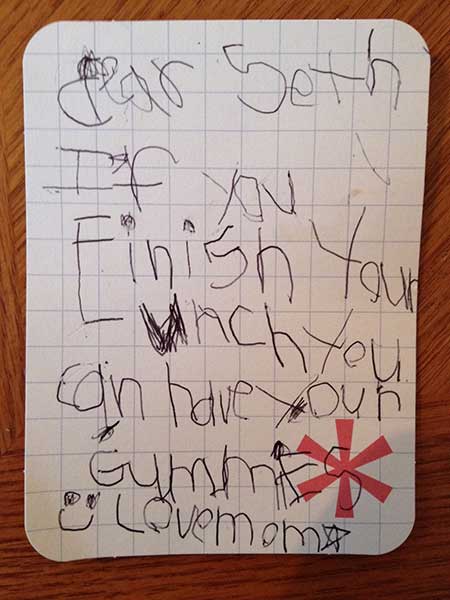 Dear Seth
If you
Finish Your
Lunch You
can have Your
GummiES
Love mom